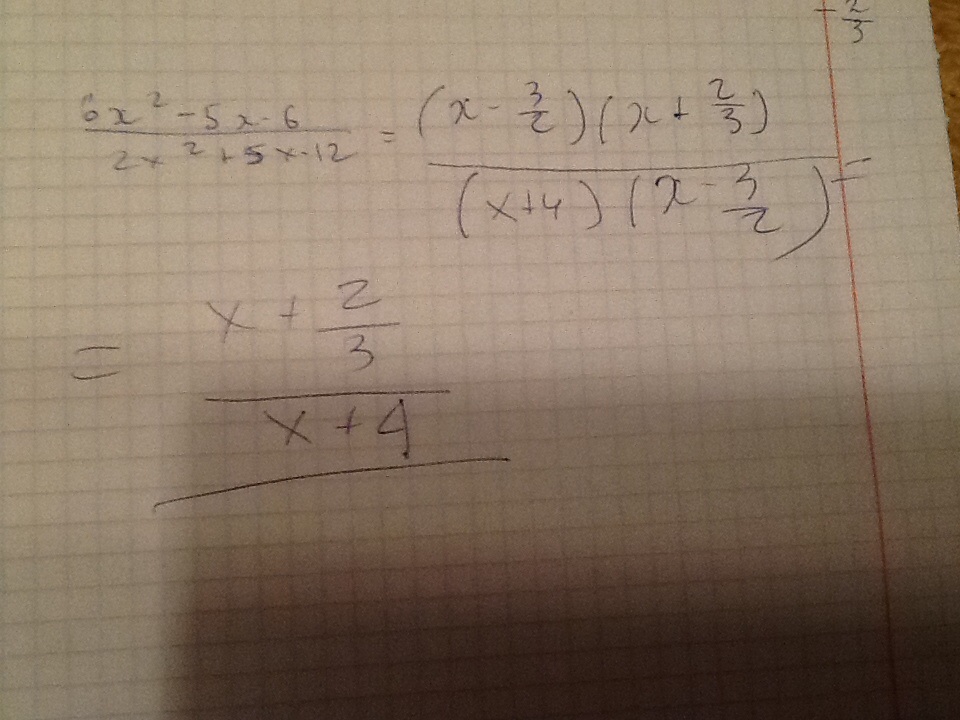 - 2/3
(6x² - 5x - 6)/(2x² + 5x - 12) = ((x - 3/2)(x + 2/3))/((x+4)(x - 3/2)) =
= (x + 2/3)/(x + 4)